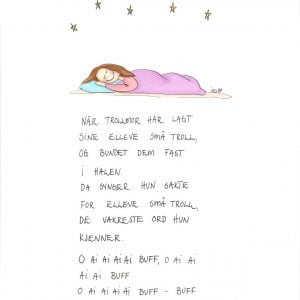 NÅR TROLLMOR HAR LAGT
SINE ELLEVE SMÅ TROLL,
OG BUNDET DEM FAST
I HALEN.
DA SYNGER HUN SAKTE
FOR ELLEVE SMÅ TROLL,
DE VAKRESTE ORD HUN
KJENNER.
O AI AI AI AI BUFF, O AI AI
AI AI BUFF
O AI AI AI AI BUFF - BUFF